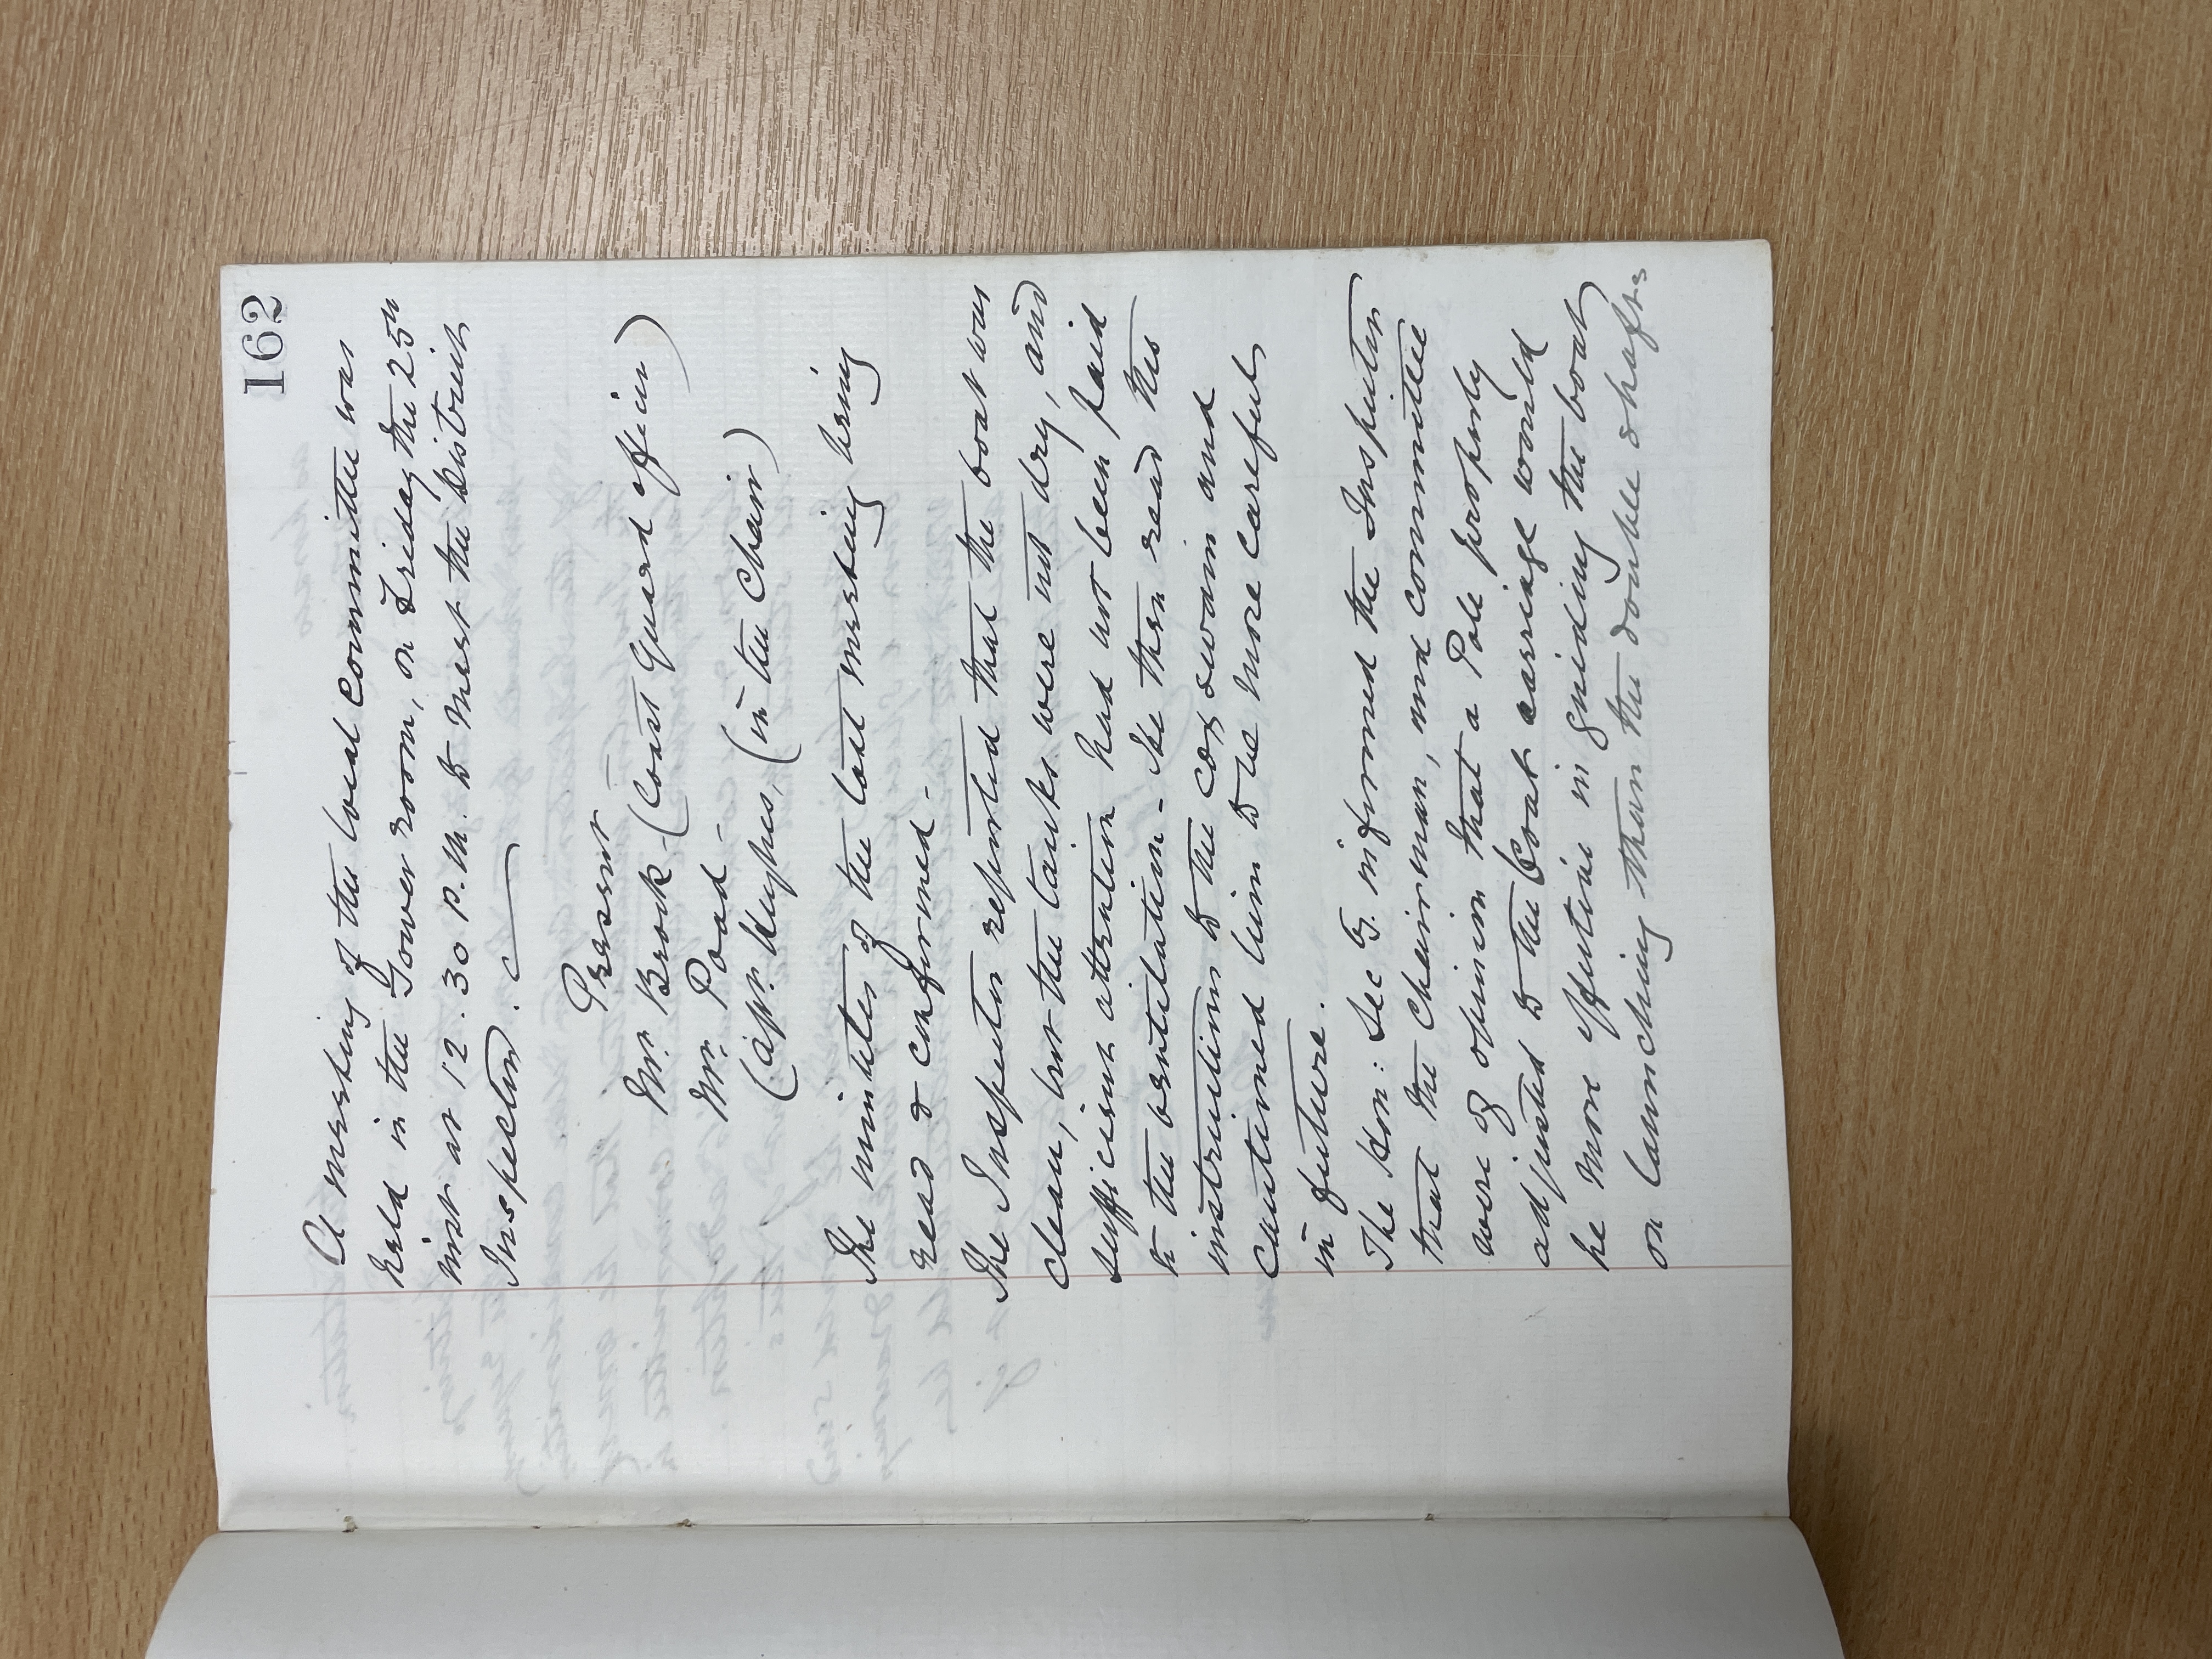 162
A meeting of the local Committee was
held in the Gower room, on Friday the 25th
inst at 12.30 P.M. to meet the District
Inspector.
Present
Mr. Brock (Coast Guard Officer)
Mr. Poad -
Capn. Hughes, (in the Chair)
The minutes of the last meeting being
read & confirmed -
The Inspector reported that the boat was
clean, but the tanks were not dry, and
sufficient attention had not been paid
to the ventilation - He then read the
instructions to the coxswain and
cautioned him to be more careful
in future.
The Hon: Secy. informed the Inspector
that the Chairman, and Committee
were of opinion that a Pole properly
adjusted to the boat carriage would
be more effective in guiding the boat
on launching than the double shafts